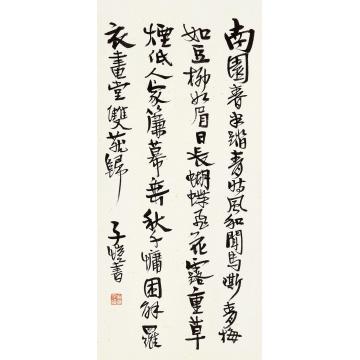 南園春半踏青時風和聞馬嘶青梅
如豆柳如眉日長蝴蝶飛花露重草
煙低人家簾幕垂秋千慵困解羅
衣畫堂雙燕歸 子愷書